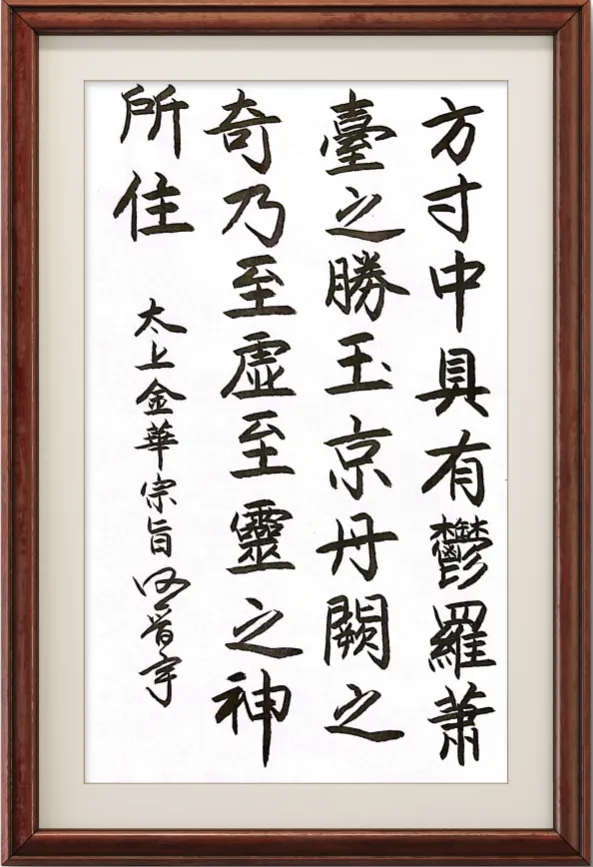 方寸中具有鬱羅蕭
臺之勝玉京丹闕之
奇乃至虛至靈之神
所住
太上金華宗旨